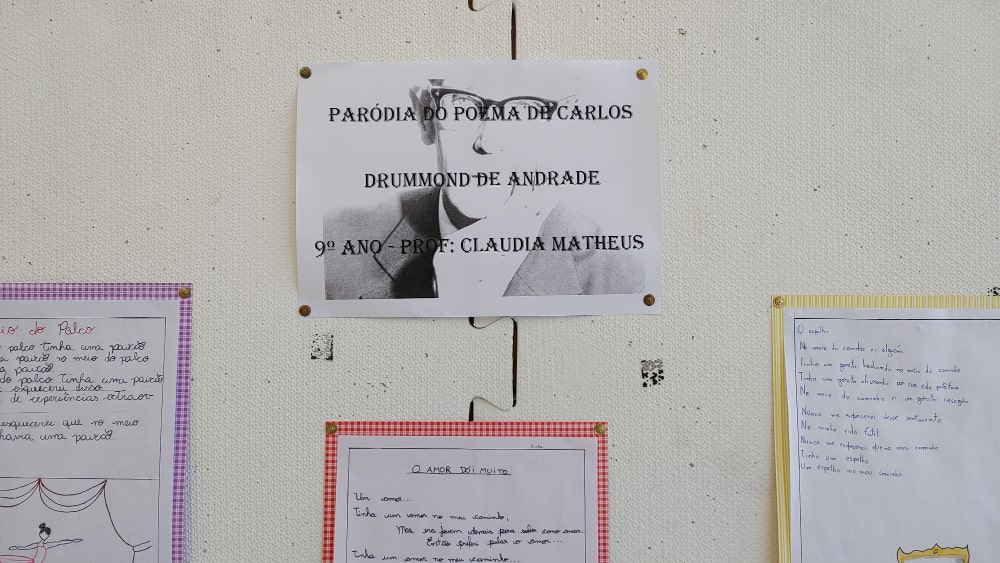 PARÓDIA DO POEMA DE CARLOS
DRUMMOND DE ANDRADE
9º ANO - PROF: CLAUDIA MATHEUS
io do Palco
palco tinha uma paixão
a paixão no meio do palco
a paixão
do palco tinha uma paixão
esquecerei disso
de experiências extraor-
esquecerei que no meio
havia uma paixão
O AMOR DÓI MUITO
Um amor...
Tinha um amor no meu caminho,
Mas era jovem demais para saber como amar
Então preferi pular o amor...
Tinha um amor no meu caminho...
O espelho
No meio do caminho vi alguém
Tinha um garoto no meio do caminho
Tinha um garoto
No meio do caminho vi um garoto
Nunca me esquecerei desse sentimento
Na minha vida fútil
Nunca me esquecerei que no meu caminho
Tinha um espelho
Um espelho no meu caminho